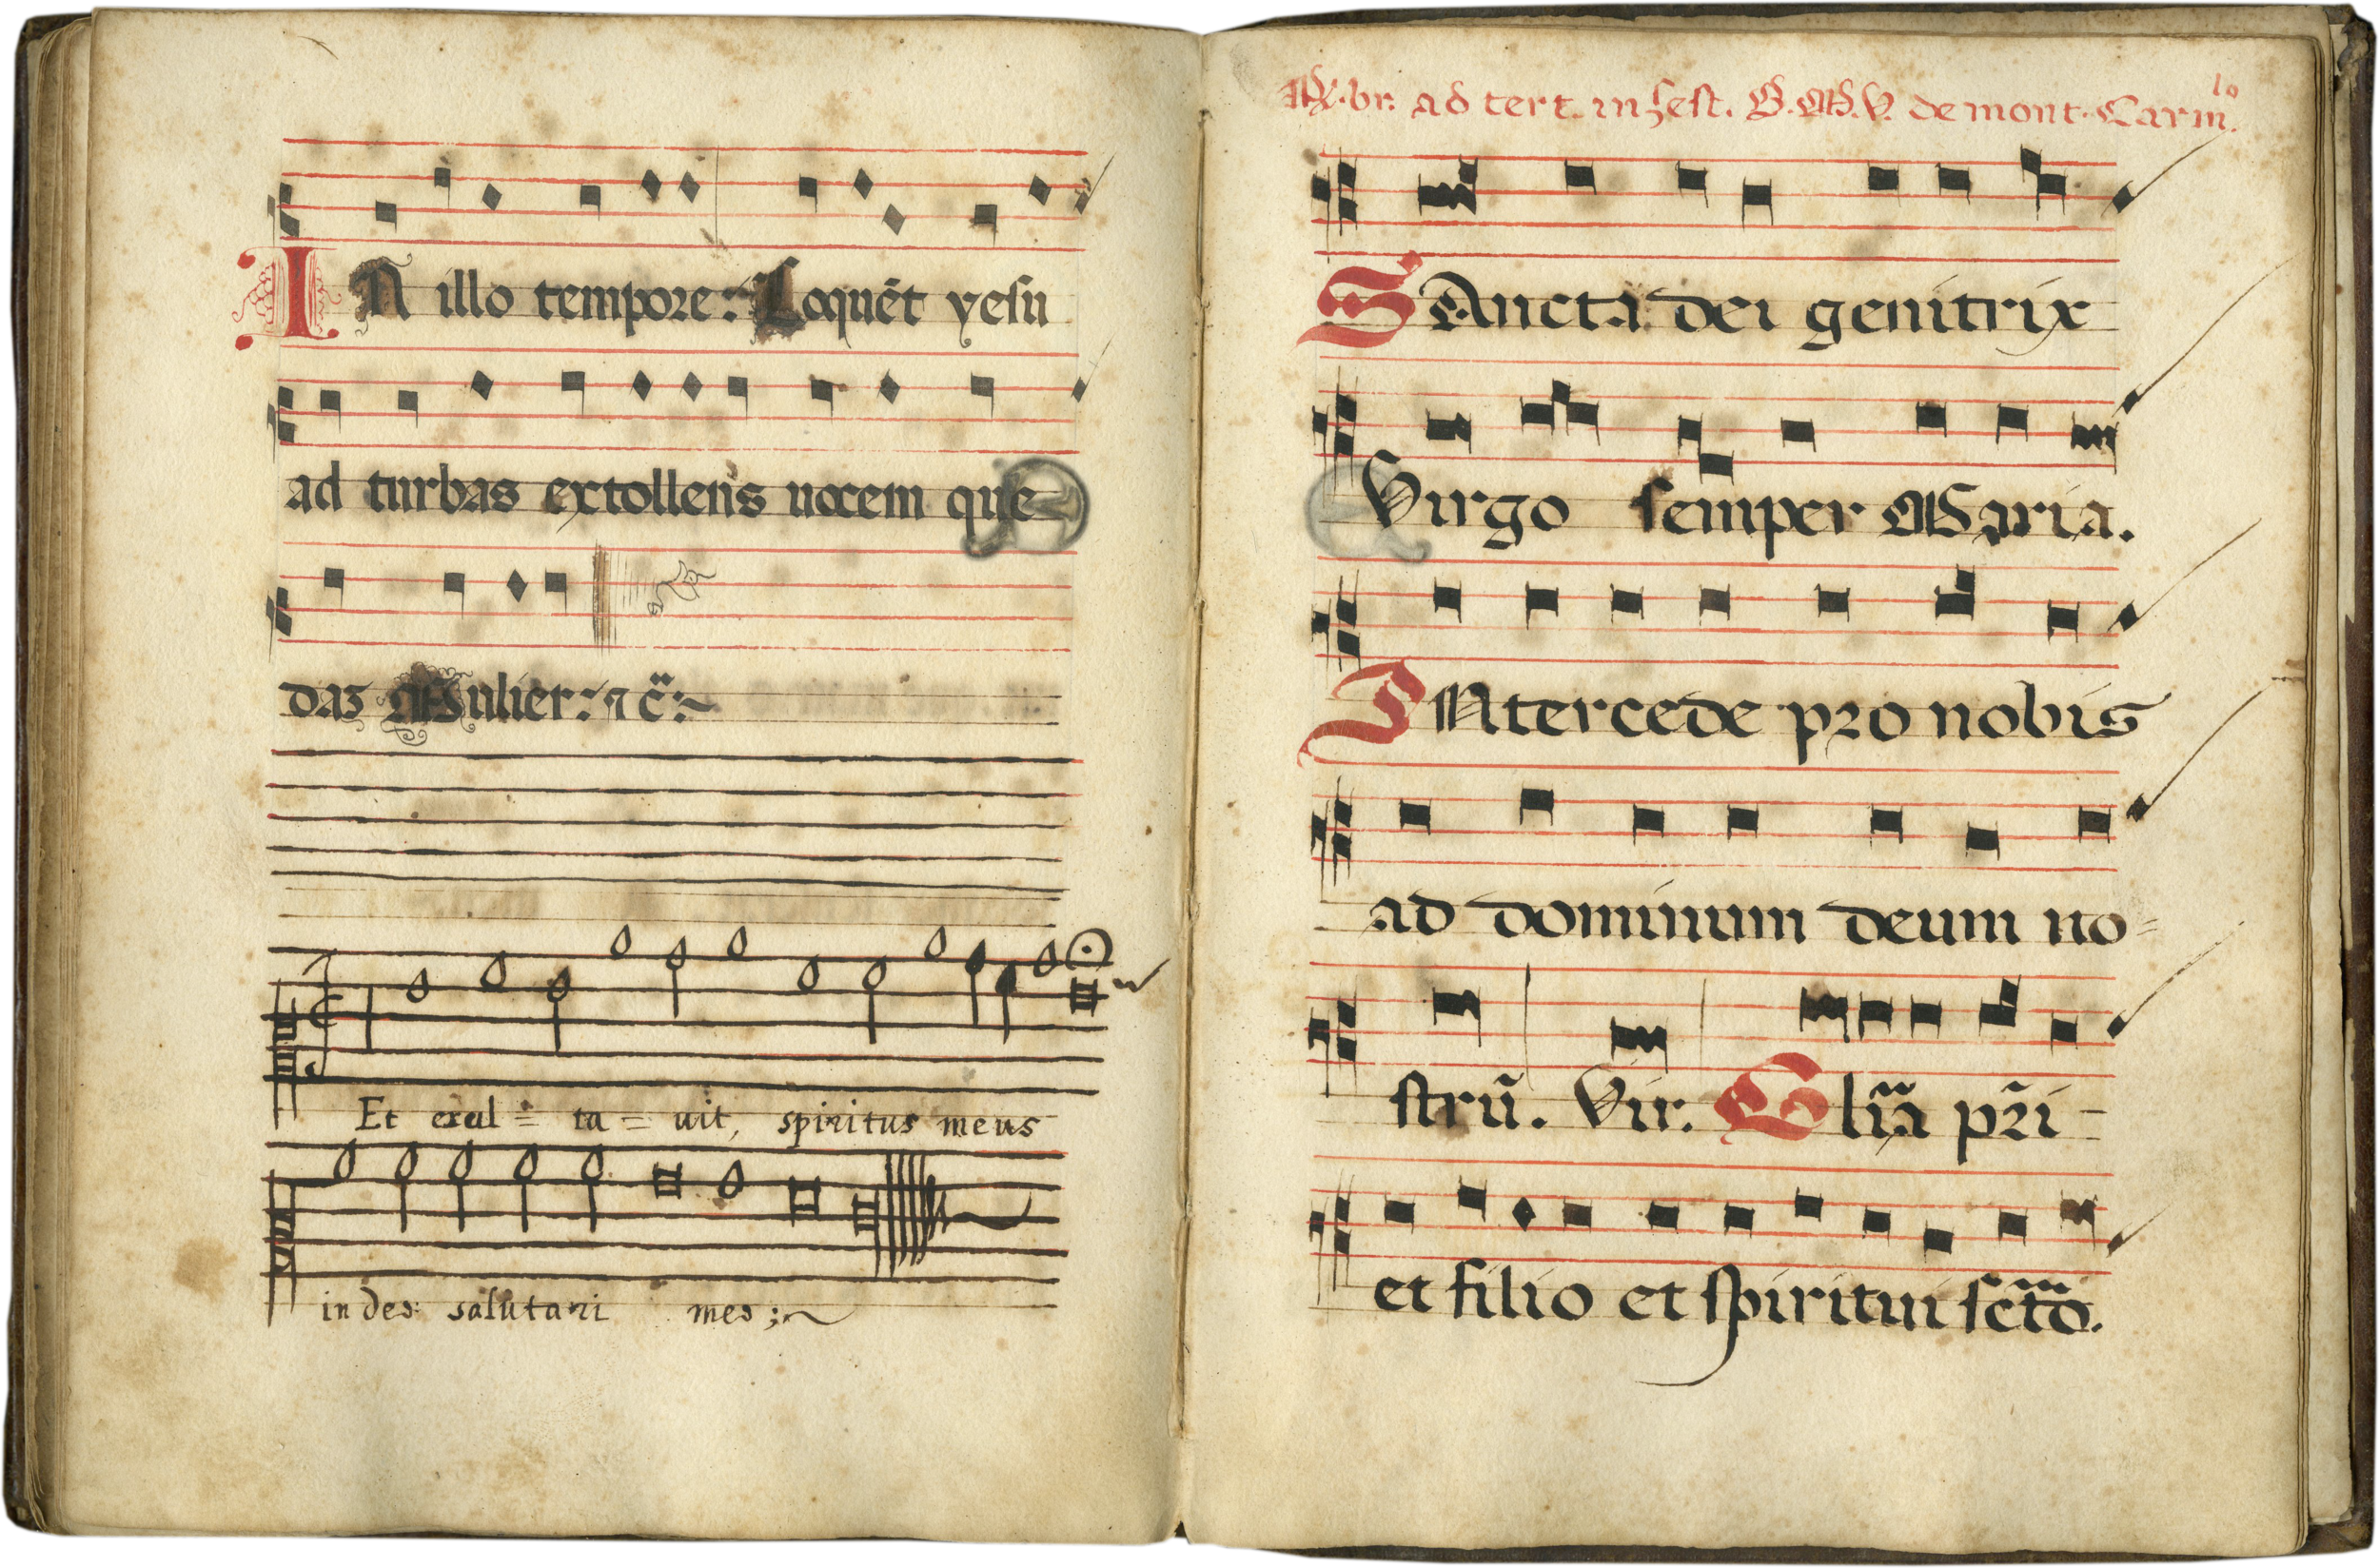 IN illo tempore: Loquēt yesu
ad turbas extollens uocem que
daz Mulier: ⁊ c̃:~
Et exul = ta = uit, spiritus meus
in deo: salutari meo ;~
℟.br. ad tert. in fest. B.M.V. de mont. Carm.lo
SAncta dei genitrix
Virgo semper Maria.
INtercede pro nobis
ad dominum deum no=
strũ. Vir. Glĩa pr̃i-
et filio et spiritui sc̃to.